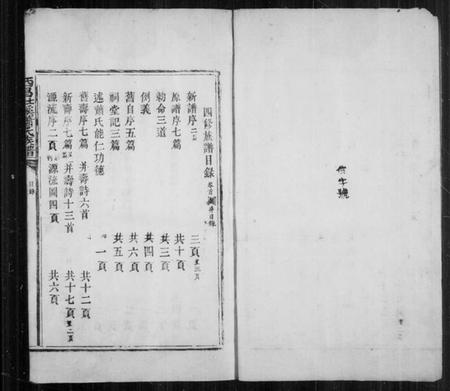 四修族譜目錄
新譜序二 三頁
原譜序七篇 共十頁
勅命三道 共三頁
例義 共四頁
舊自序五篇 共六頁
祠堂記三篇 共五頁
述蕭氏能仁功德 一頁
舊壽序七篇 并壽詩六首 共十二頁
新壽序七篇 并壽詩十三首 共十七頁
源流序二頁 源流圖四頁 共六頁
目錄
字號